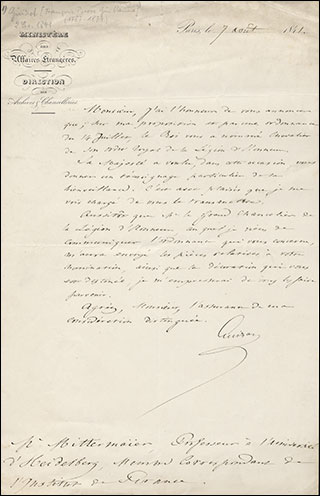 MINISTÈRE
DES
Affaires Etrangères.
DIRECTION
DES
Archives & Chancelleries
Paris, le 7 août 1841.
Monsieur, j'ai l'honneur de vous annoncer
que, sur ma proposition et par une ordonnance
du 14 Juillet, le Roi vous a nommé Chevalier
de son ordre royal de la Légion d'Honneur.
Sa Majesté a voulu, dans cette occasion, vous
donner un témoignage particulier de sa
bienveillance. C'est avec plaisir que je me
vois chargé de vous le transmettre.
Aussitôt que Mr. le Grand Chancelier
de la Légion d'Honneur, auquel je viens de
communiquer l'ordonnance qui vous concerne,
m'aura envoyé les pièces relatives à votre
nomination, ainsi que la décoration qui vous
est destinée, je m'empresserai de vous les faire
parvenir.
Agréez, Monsieur, l'assurance de ma
considération distinguée.
Guizot
Mr. Mittermaier, Professeur à l'université
d'Heidelberg, Membre correspondant de
l'Institut de France.